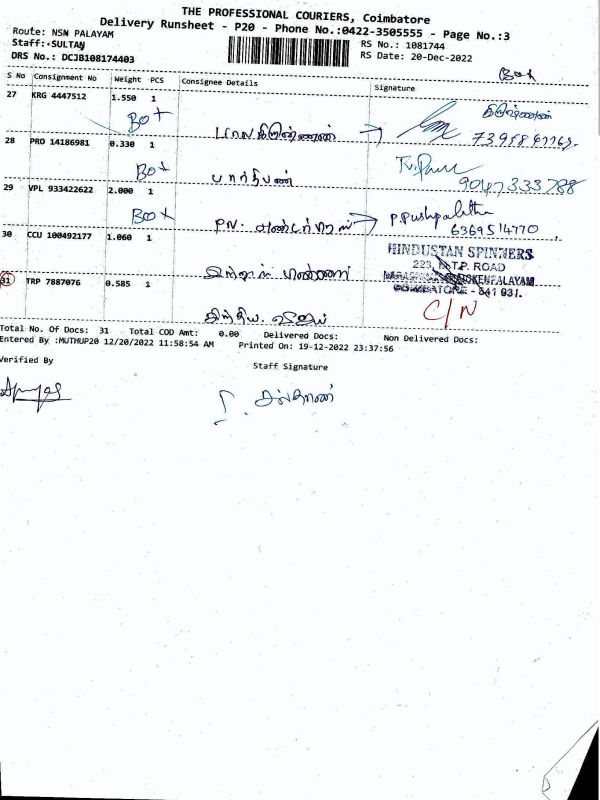 THE PROFESSIONAL COURIERS, Coimbatore
Delivery Runsheet - P20 - Phone No.:0422-3505555 - Page No.:3
Route: NSN PALAYAM
Staff: SULTAN
RS No.: 1081744
DRS No.: DCJB108174403
RS Date: 20-Dec-2022
Box
S No Consignment No Weight PCS Consignee Details Signature
27 KRG 4447512 1.550 1
Box
28 PRO 14186981 0.330 1
Box பார்த்திபன்
9047333788
29 VPL 933422622 2.000 1
Box
P. Pushpalatha
6369514770
30 CCU 100492177 1.060 1
HINDUSTAN SPINNERS
223, M.T.P. ROAD
COIMBATORE - 641 031.
31 TRP 7887076 0.585 1
C/N
Total No. Of Docs: 31 Total COD Amt: 0.00 Delivered Docs: Non Delivered Docs:
Entered By :MUTHUP20 12/20/2022 11:58:54 AM Printed On: 19-12-2022 23:37:56
Verified By
Staff Signature